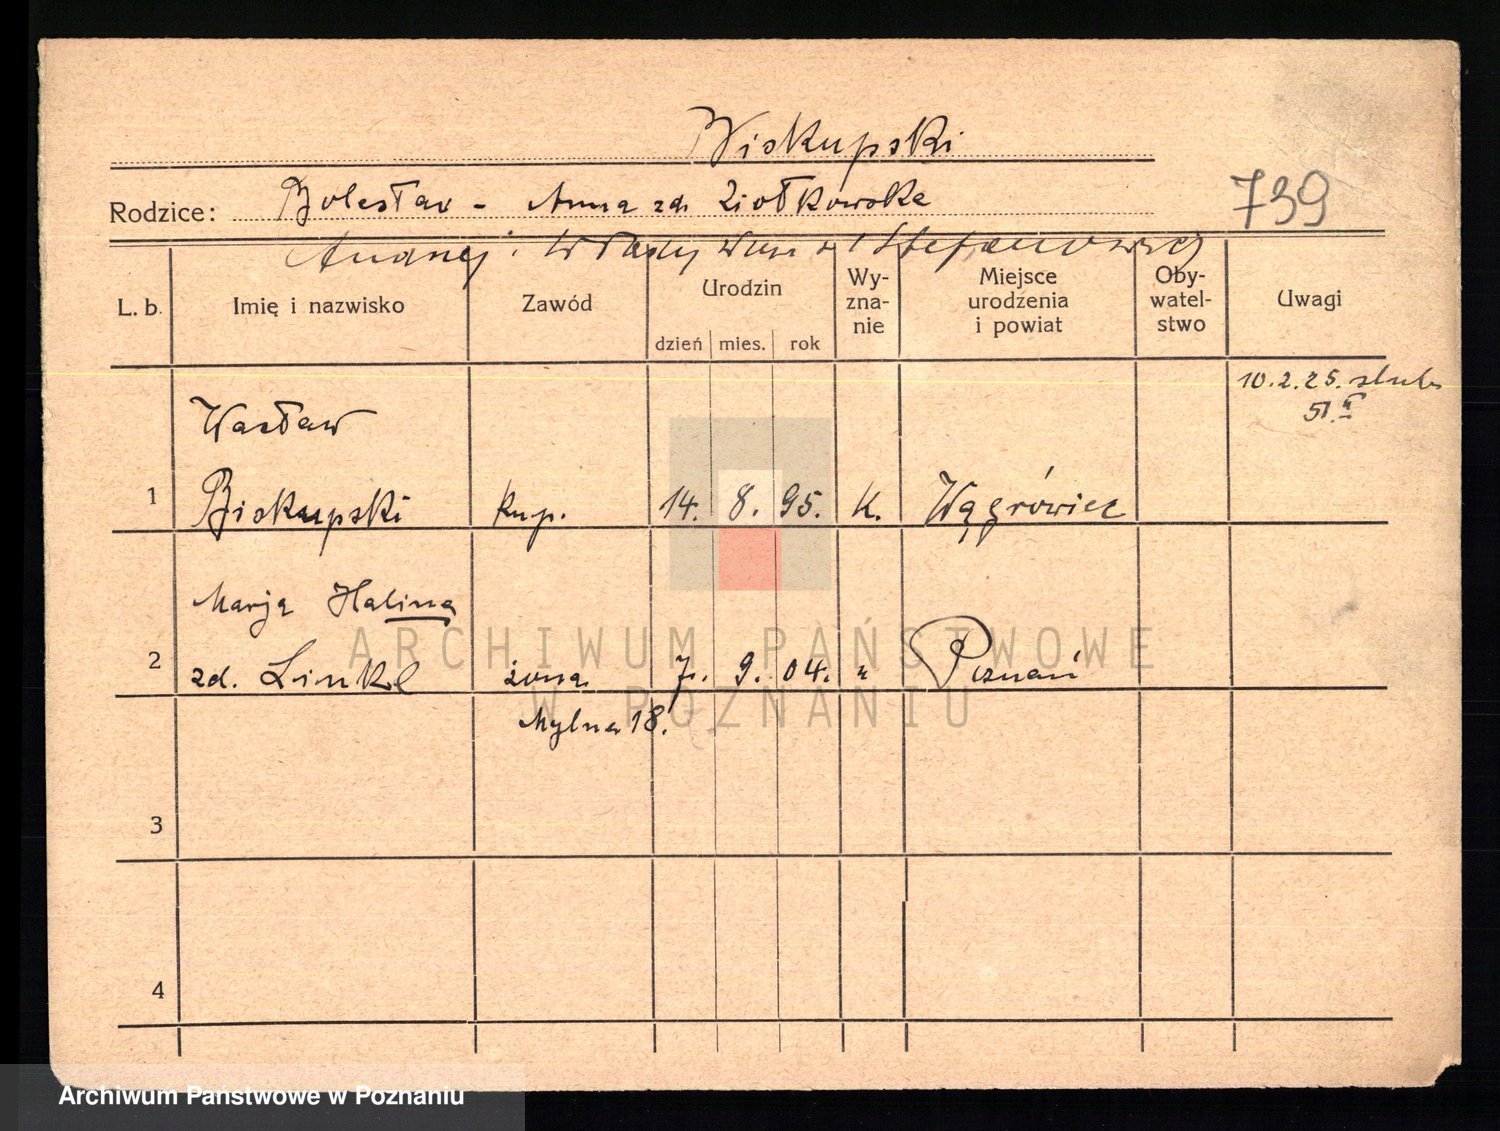 Biskupski
Rodzice: Bolesław - Anna zd. Ziołkowska
739
Andrzej i Władysława z Stefanowscy
L. b. Imię i nazwisko Zawód Urodzin dzień mies. rok Wy-zna-nie Miejsce urodzenia i powiat Oby-watel-stwo Uwagi
10.2.25. ślub
Wacław
1 Biskupski kup. 14. 8. 95. K. Wągrówiec
Marja Halina
2 zd. Linke żona 7. 9. 04. " Poznań
Mylna 18.
3
4
ARCHIWUM PAŃSTWOWE
W POZNANIU
Archiwum Państwowe w Poznaniu